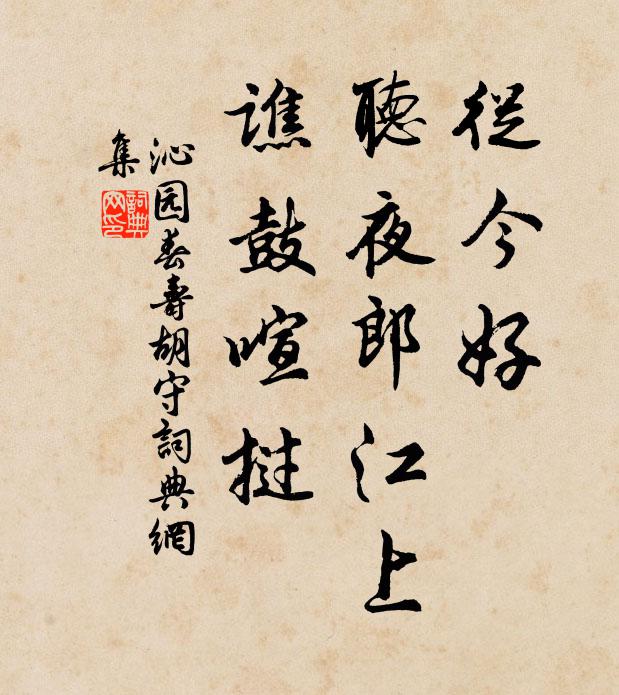 從今好
聽夜郎江上
譙鼓喧撻
沁园春壽胡守詞典網
集
詞典
网印